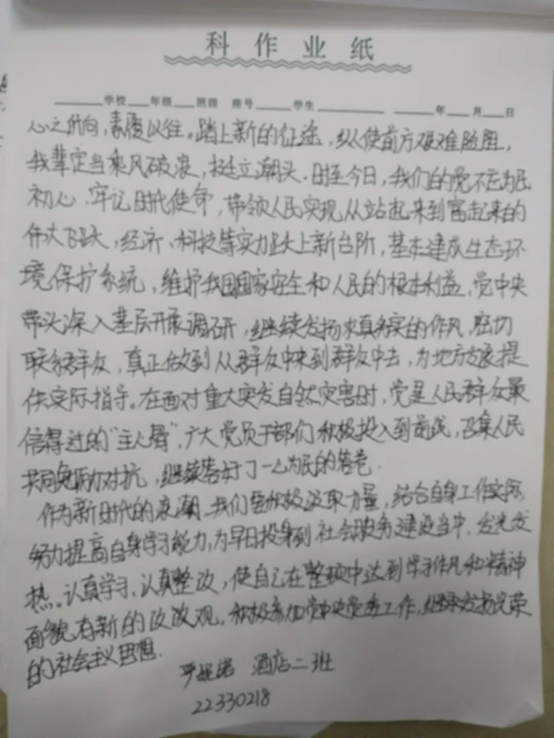 科作业纸
学校 年级 班级 座号 学生 年 月 日
心之所向，素履以往。踏上新的征途，纵使前方艰难险阻，
我辈定当乘风破浪，挺立潮头。时至今日，我们的党不忘为民
初心，牢记时代使命，带领人民实现从站起来到富起来的
伟大飞跃，经济、科技等实力跃上新台阶，基本建成生态环
境保护系统，维护我国国家安全和人民的根本利益，党中央
带头深入基层开展调研，继续发扬求真务实的作风，密切
联系群众，真正做到从群众中来到群众中去，为地方发展提
供实际指导。在面对重大突发自然灾害时，党是人民群众最
信得过的“主人”，广大党员干部们积极投入到，召集人民
共同对抗，继续书写了一心为民的答卷。
作为新时代的浪潮，我们要积极汲取力量，结合自身工作实际，
努力提高自身学习能力，为早日投身到社会服务建设当中，发光发
热。认真学习，认真整改，使自己在整顿中达到学习作风和精神
面貌有新的改改观。积极参加党中央党务工作，继承发扬光荣
的社会主义思想。
严妮诺 酒店二班
22330218